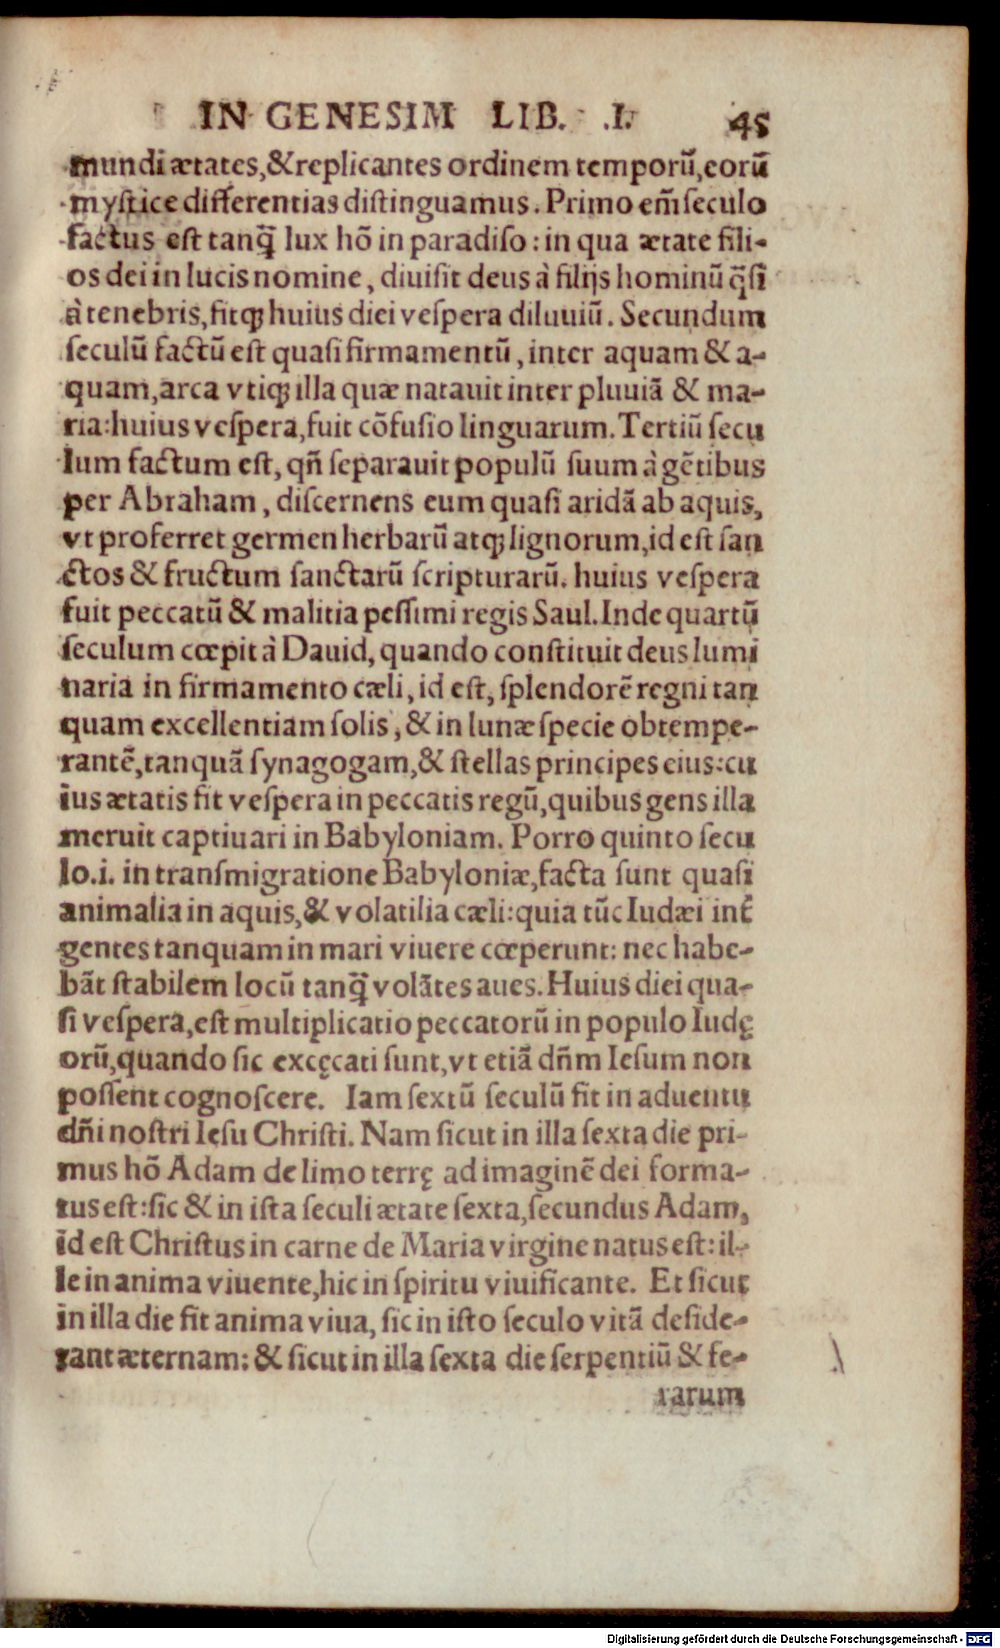 IN GENESIM LIB. .I. 45
mundi ætates, & replicantes ordinem temporũ, eorũ
mystice differentias distinguamus. Primo em̃ seculo
factus est tanq̃ lux hõ in paradiso: in qua ætate fili-
os dei in lucis nomine, diuisit deus à filijs hominũ q̃si
à tenebris, fitq; huius diei vespera diluuiũ. Secundum
seculũ factũ est quasi firmamentũ, inter aquam & a-
quam, arca vtiq; illa quæ natauit inter pluuiã & ma-
ria: huius vespera, fuit cõfusio linguarum. Tertiũ secu
lum factum est, qñ separauit populũ suum à gẽtibus
per Abraham, discernens eum quasi aridã ab aquis,
vt proferret germen herbarũ atq; lignorum, id est san
ctos & fructum sanctarũ scripturarũ. huius vespera
fuit peccatũ & malitia pessimi regis Saul. Inde quartũ
seculum cœpit à Dauid, quando constituit deus lumi
naria in firmamento cæli, id est, splendorẽ regni tan
quam excellentiam solis, & in lunæ specie obtempe-
rantẽ, tanquã synagogam, & stellas principes eius: cu
ius ætatis fit vespera in peccatis regũ, quibus gens illa
meruit captiuari in Babyloniam. Porro quinto secu
lo .i. in transmigratione Babyloniæ, facta sunt quasi
animalia in aquis, & volatilia cæli: quia tũc Iudæi int̃
gentes tanquam in mari viuere cœperunt: nec habe-
bãt stabilem locũ tanq̃ volãtes aues. Huius diei qua-
si vespera, est multiplicatio peccatorũ in populo Iudę
orũ, quando sic excęcati sunt, vt etiã dñm Iesum non
possent cognoscere. Iam sextũ seculũ fit in aduentu
dñi nostri Iesu Christi. Nam sicut in illa sexta die pri-
mus hõ Adam de limo terrę ad imaginẽ dei forma-
tus est: sic & in ista seculi ætate sexta, secundus Adam,
id est Christus in carne de Maria virgine natus est: il-
le in anima viuente, hic in spiritu viuificante. Et sicut
in illa die fit anima viua, sic in isto seculo vitã deside-
rant æternam: & sicut in illa sexta die serpentiũ & fe-
rarum
Digitalisierung gefördert durch die Deutsche Forschungsgemeinschaft - DFG